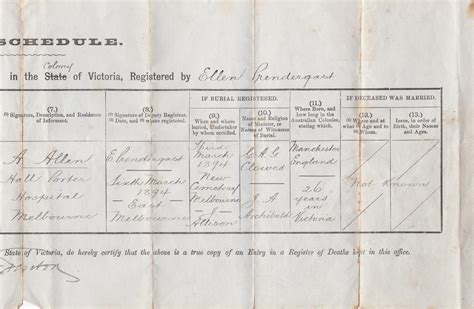 SCHEDULE.
Colony
in the State of Victoria, Registered by Ellen Prendergast
IF BURIAL REGISTERED.
IF DECEASED WAS MARRIED.
(7.)
(8.)
(9.)
(10.)
(11.)
(12.)
(13.)
(1) Signature, Description, and Residence of Informant.
(1) Signature of Deputy Registrar, (2) Date, and (3) Where
(1) When and where buried, Undertaker by whom certified.
(1) Name and Religion of Minister, or Names of Witnesses of Burial.
Where Born, and how long in the Australian Colonies, stating which.
(1) Where and at what (2) Age and to (3) Whom.
Issue, in order of Birth, their Names and Ages.
A Allen
Hall Porter
Hospital
Melbourne
E Prendergast
Sixth March
1894
East
Melbourne
Third
March
1894
New
Cemetery
Melbourne
J
Allison
G. A. G
Clowes
J. A
Archibald
Manchester
England
26
years
in
Victoria
Not Known
State of Victoria, do hereby certify that the above is a true copy of an Entry in a Register of Deaths kept in this office.